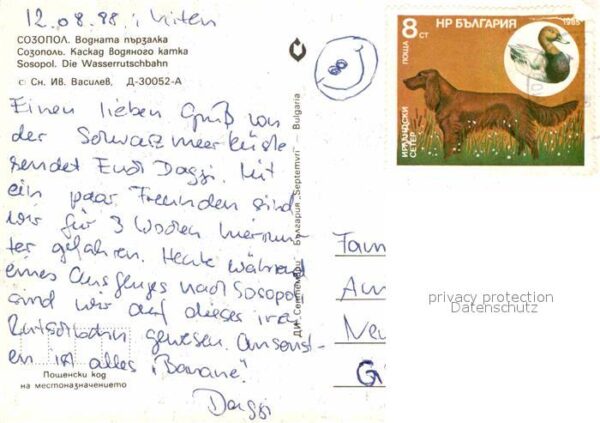 12.08.88, Kiten
СОЗОПОЛ. Водната пързалка
Созополь. Каскад Водяного катка
Sosopol. Die Wasserrutschbahn
© Сн. Ив. Василев, Д-30052-А
Einen lieben Gruß von
der Schwarzmeerküste
sendet Euch Daggi. Mit
ein paar Freunden sind
wir für 3 Wochen hierrun-
ter gefahren. Heute während
eines Ausfluges nach Sosopol
sind wir auf dieser
Rutschbahn gewesen. Ansonst-
en ist alles „Banane".
Daggi
Пощенски код
на местоназначението
ДИ „Септември" България „Septemvri" Bulgaria
НР БЪЛГАРИЯ 1985
ПОЩА 8 СТ
ИРЛАНДСКИ
СЕТЕР
Fam
Ne
G
privacy protection
Datenschutz